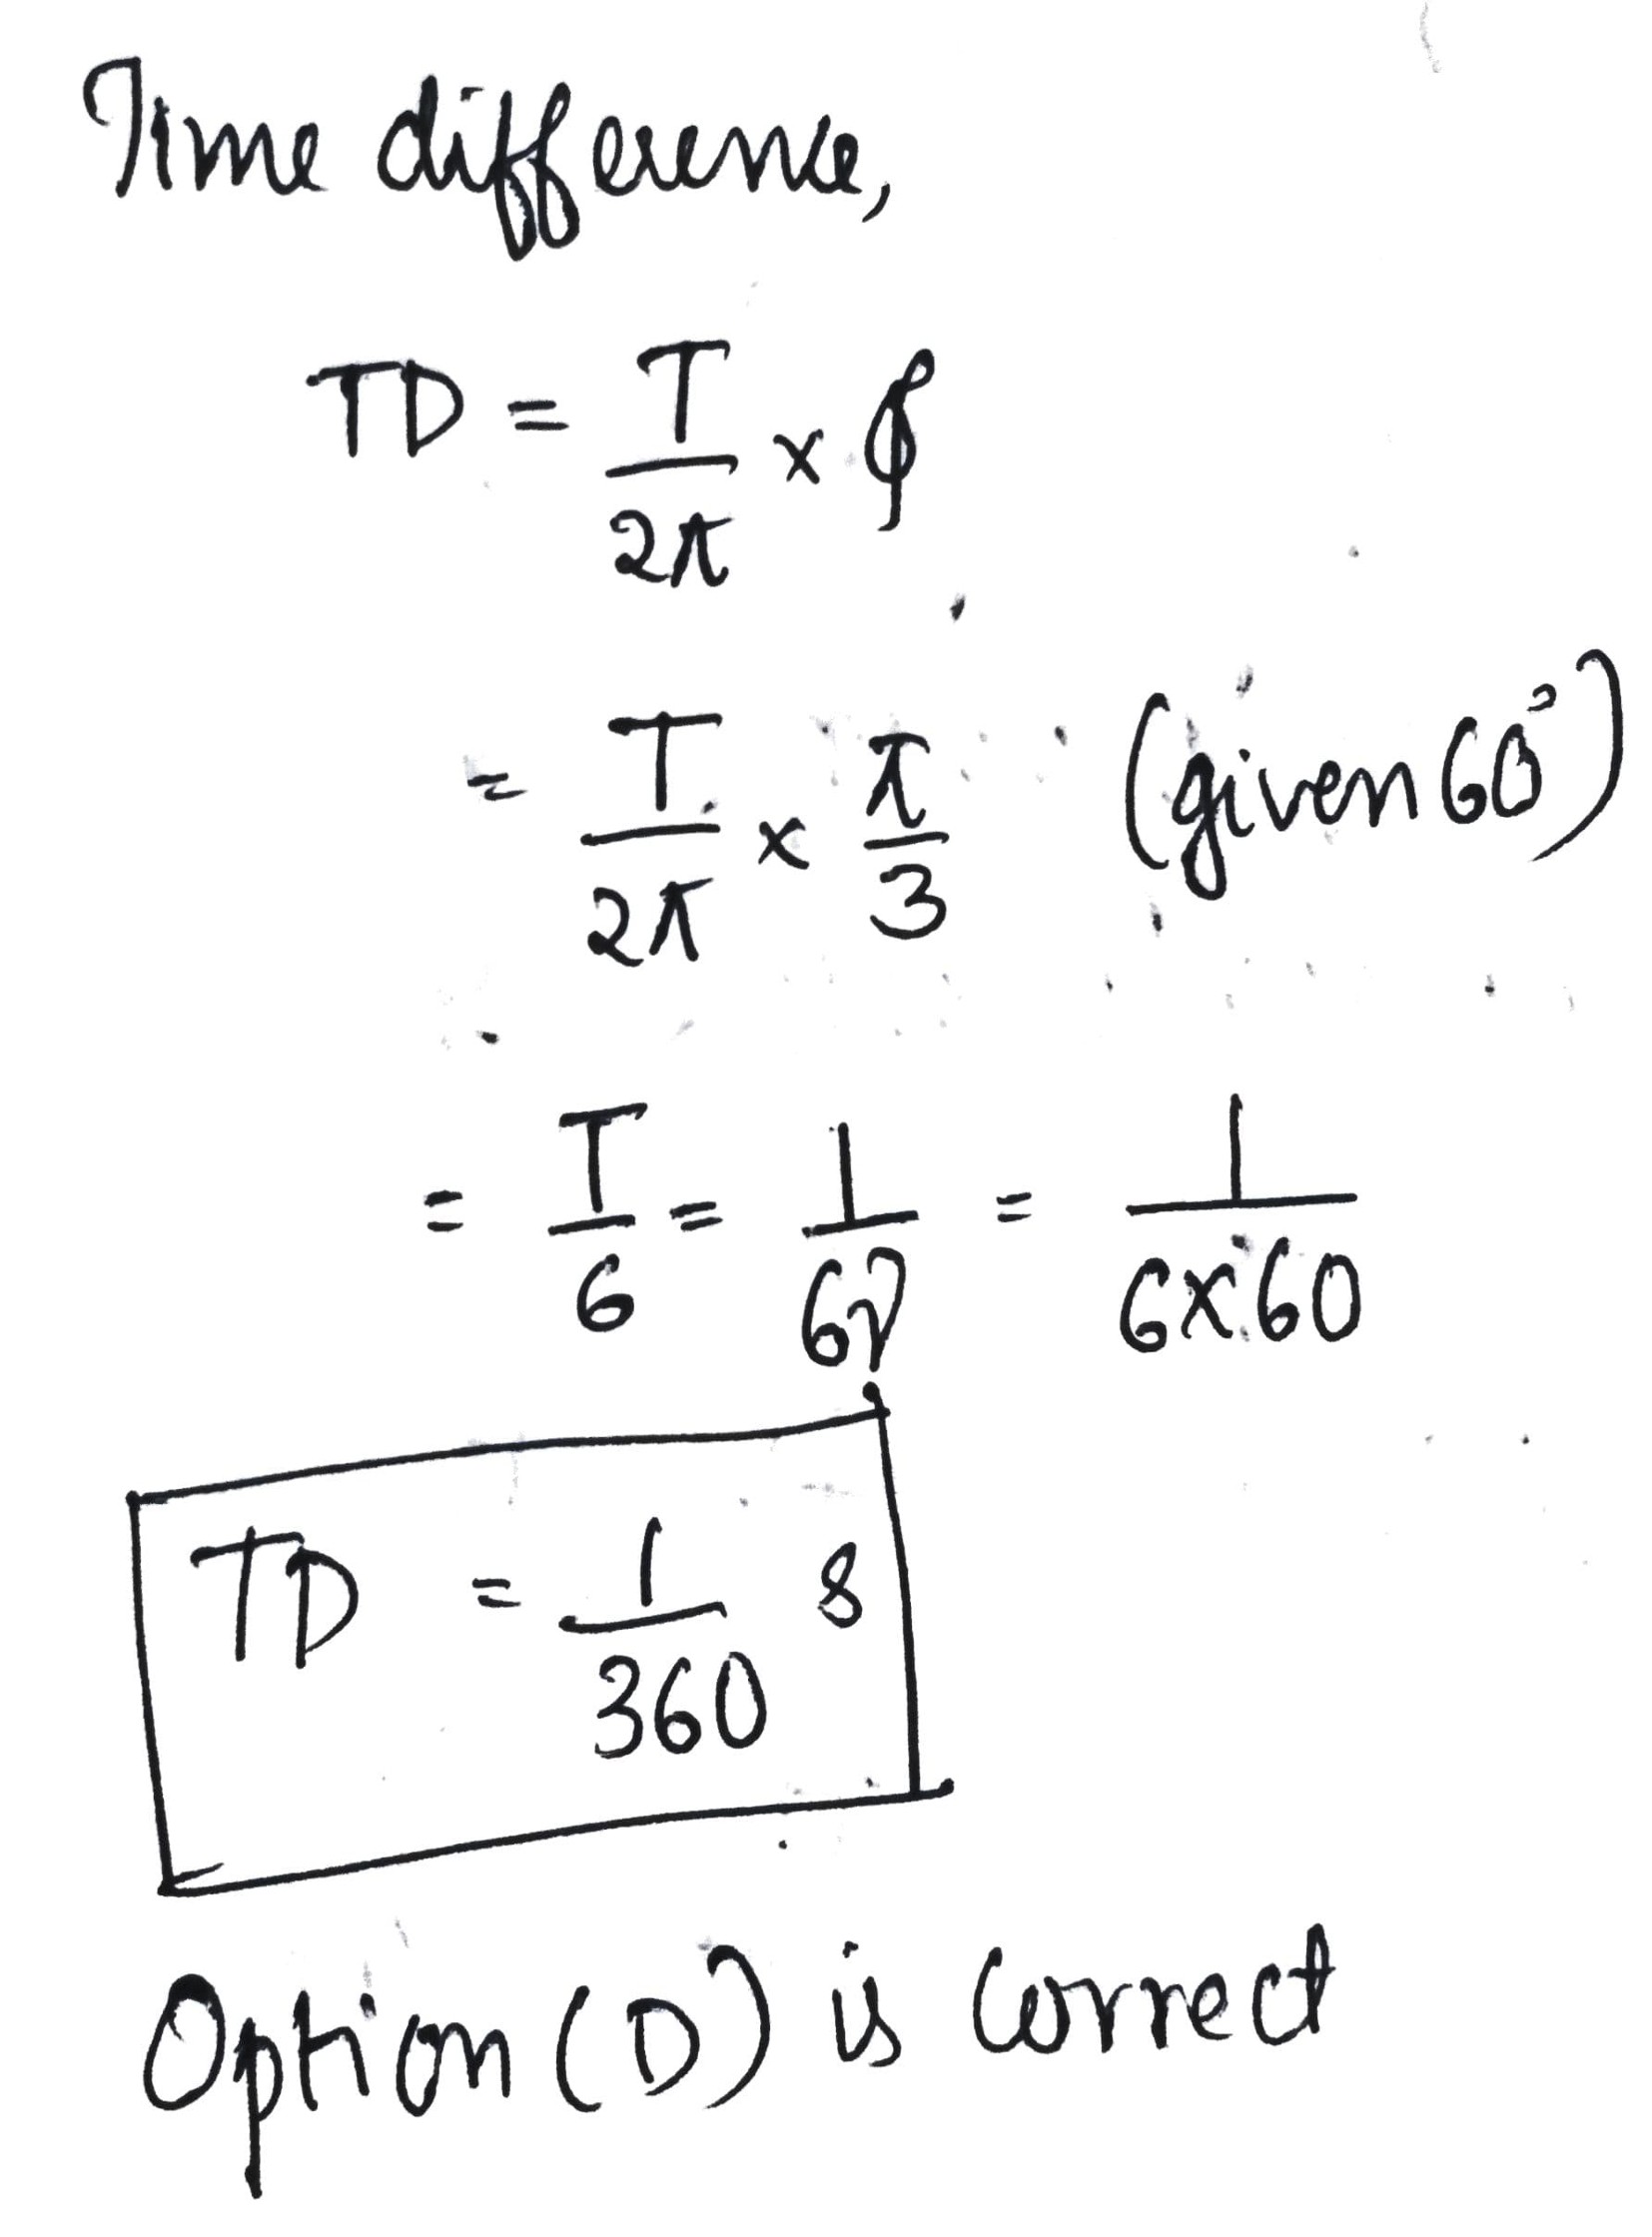 Time difference,
TD = T/2π × ϕ
= T/2π × π/3 (given 60°)
= T/6 = 1/6ν = 1/6×60
TD = 1/360 s
Option (D) is correct